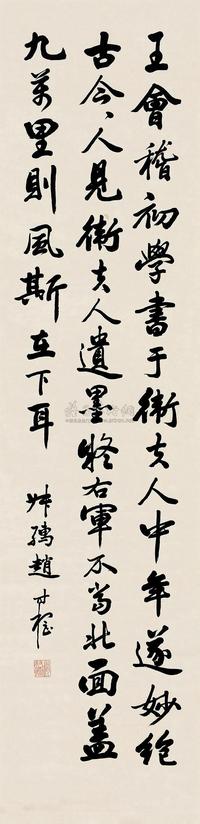 王會稽初學書于衛夫人中年遂妙絕
古今今人見衛夫人遺墨疑右軍不當北面蓋
九萬里則風斯在下耳
叔孺趙時棡